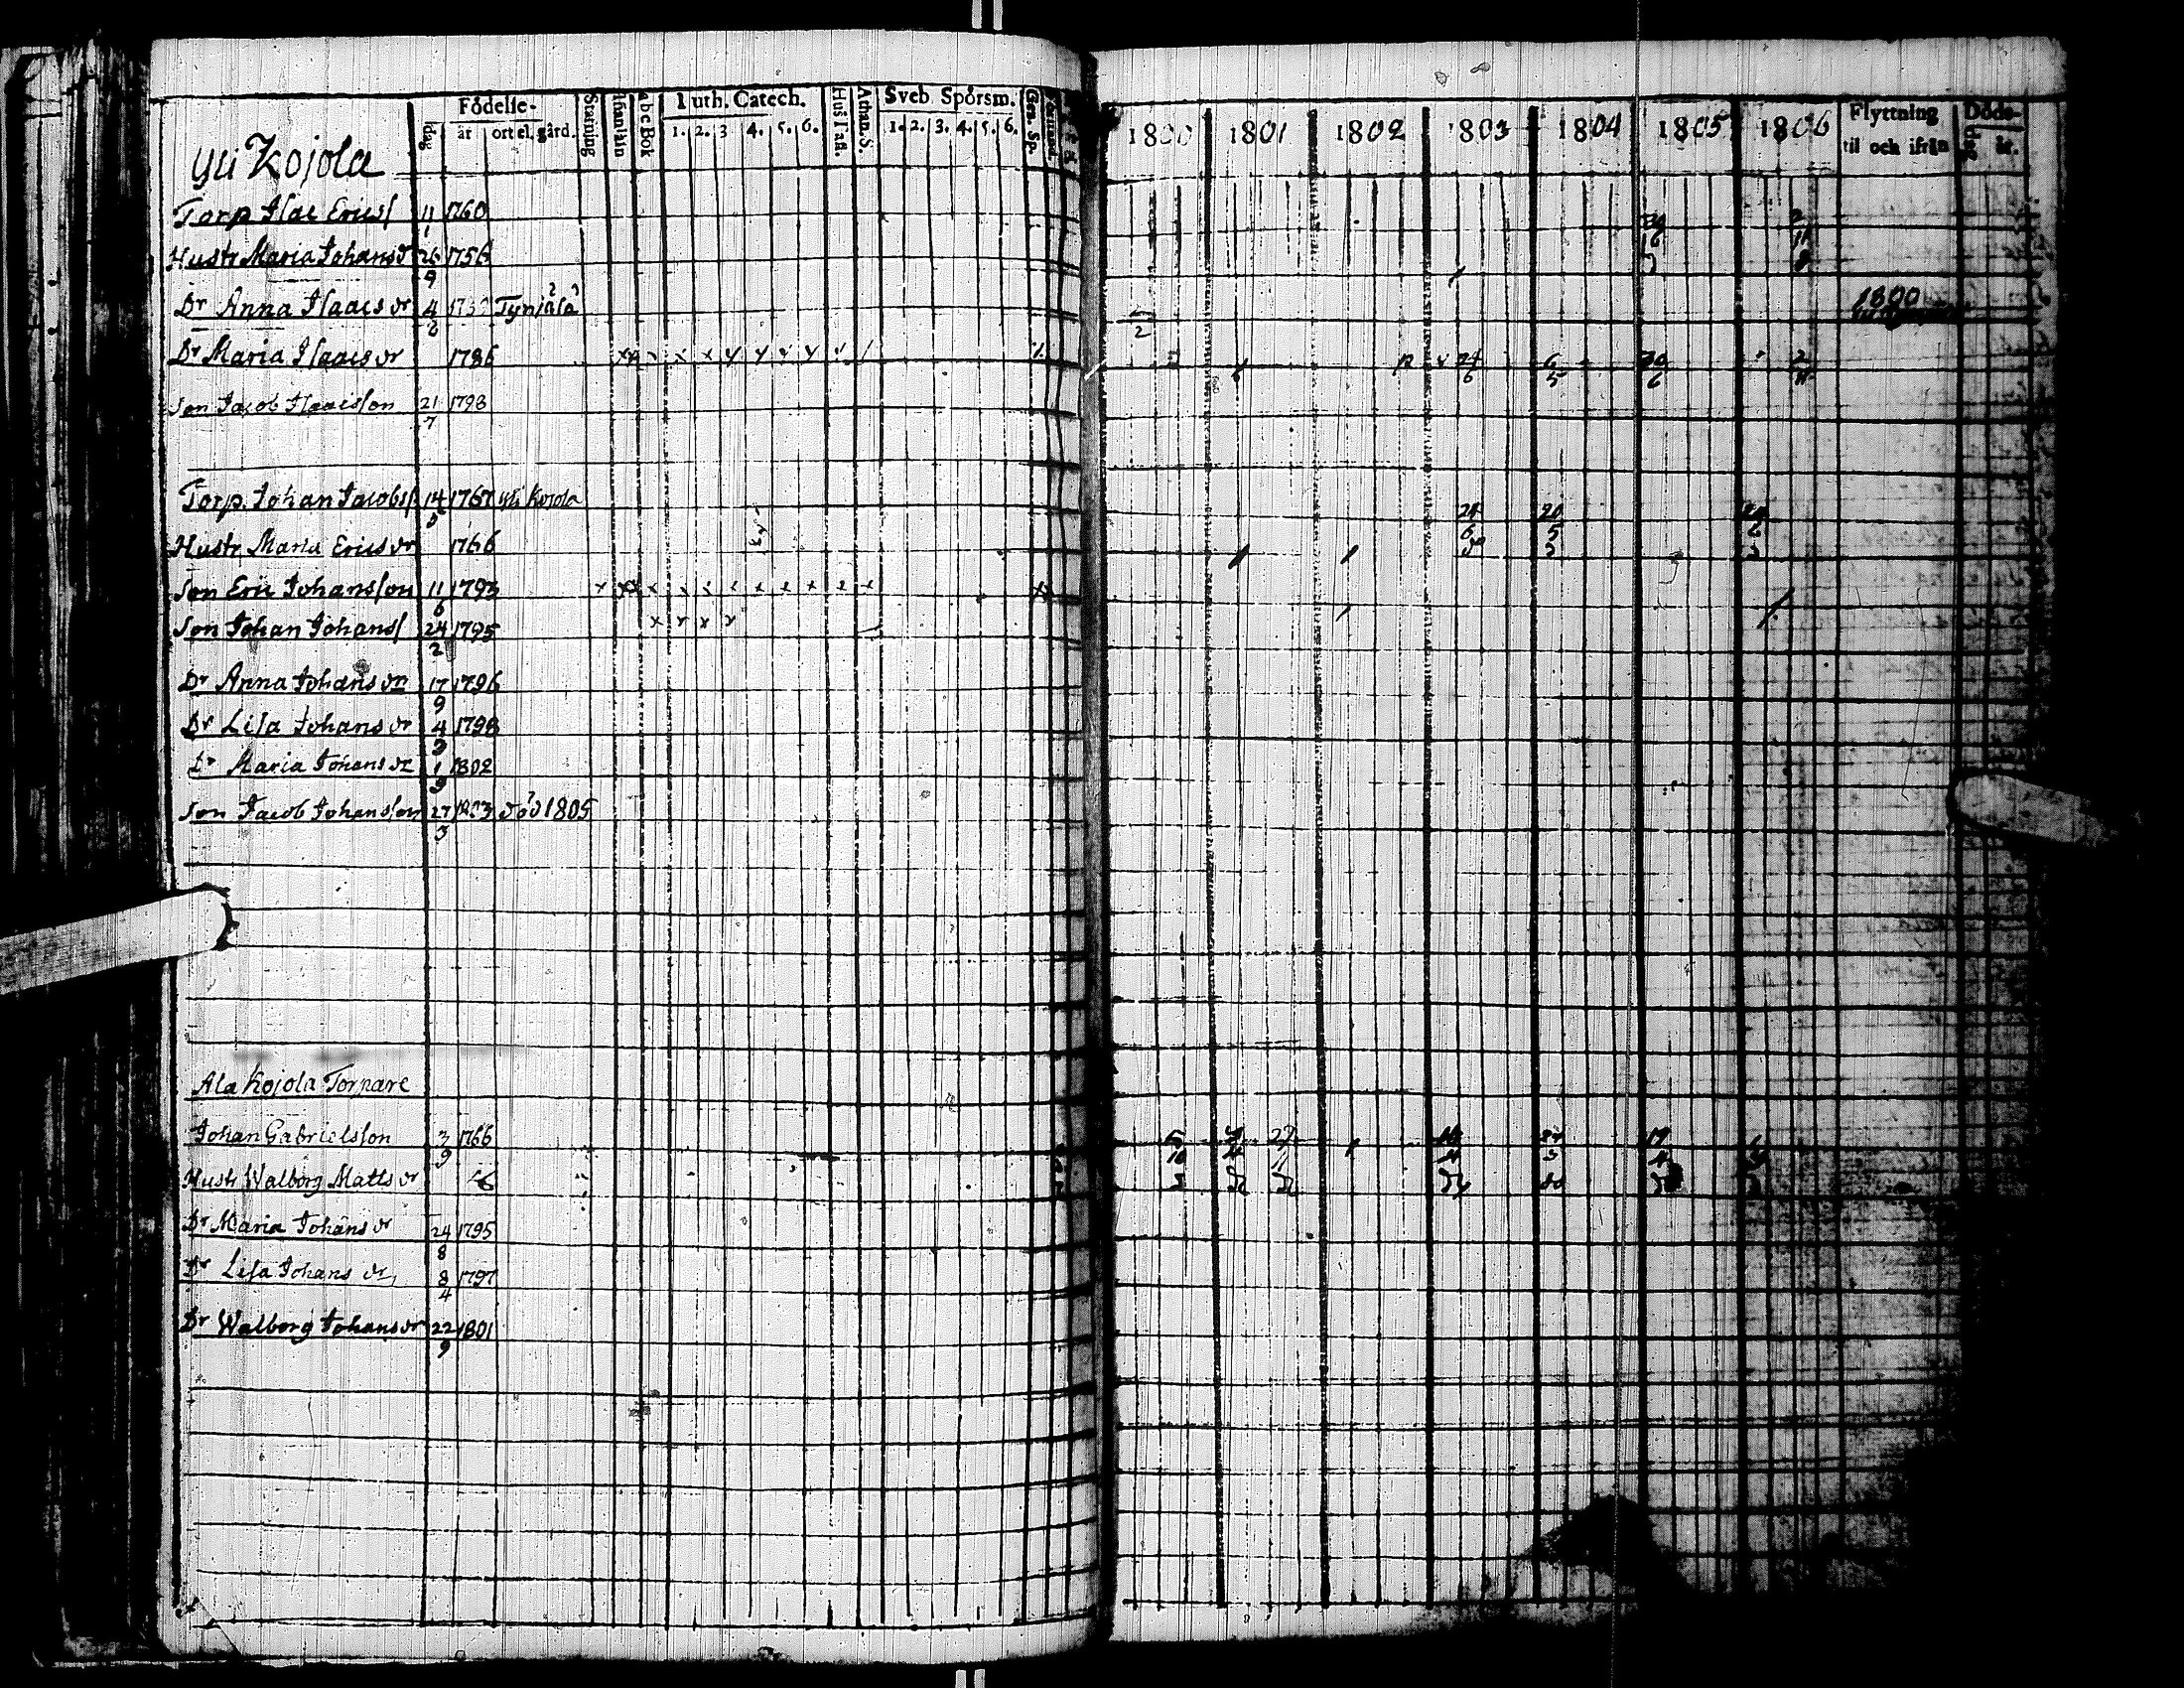 Födelse- Luth. Catech. Sveb. Spörsm.
dag år ort el. gård. Stafning Abc Bok 1. 2. 3 4. 5. 6. Hus Tafl. Athan. S. 1. 2. 3. 4. 5. 6. Gen. Sp.
1800 1801 1802 1803 1804 1805 1806 Flyttning til och ifrån Döds- dag år.
Yli Kojola
Torp. Isac Ericss 11/1 1760
Hustr Maria Johans dr 26/9 1756
Dr Anna Isaacs dr 4/2 Tynjälä 1800
Dr Maria Isaacs dr 1786 24/6 6/5 30/6
Son Jacob Isaacsson 21/7 1798
Torp. Johan Jacobss 14 1767 Yli Kojola
Hustr. Maria Erics dr 1766
Son Eric Johansson 11/6 1793
Son Johan Johanss 24/2 1795
Dr Anna Johans dr 17/9 1796
Dr Lisa Johans dr 4/3 1798
Dr Maria Johans dr 1/9 1802
Son Jacob Johansson 27/3 1803 död 1805
Ala Kojola Torpare
Johan Gabrielsson 3/9 1766
Hustr Walborg Matts dr
Dr Maria Johans dr 24/8 1795
Dr Lisa Johans dr 8/4 1797
Dr Walborg Johans dr 22/9 1801